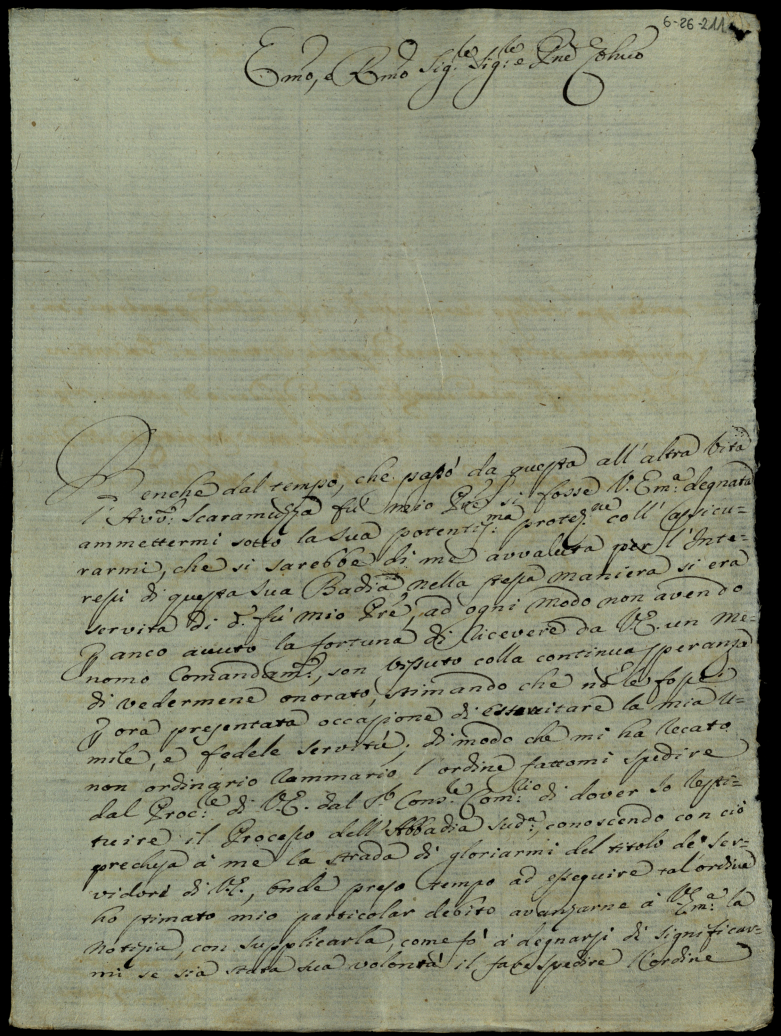 6-26-211
Emo, e Rmo Sig.re Sig.re e Pne Colmo
Benche dal tempo, che passò da questa all'altra Vita
l'Avvo. Scaramuzza fù mio Pre si fosse V. Em.a degnata
ammettermi sotto la sua potentis.ma protez.ne coll'assicu=
rarmi, che si sarebbe di me avvaluta per l'Inte=
ressi di questa sua Badia, nella stessa maniera si era
servita di d.o fù mio Pre, ad ogni modo non avendo
p anco avuto la fortuna di ricevere da V.E. un me=
nomo Comandam.to, son vissuto colla continua speranza
di vedermene onorato, stimando che nō le fosse
p ora presentata occasione di esercitare la mia u=
mile, e fedele servitù; di modo che mi ha recato
non ordinario rammarico l'ordine fattomi spedire
dal Proc.re di V.E. dal S. Cons.re Com.rio di dover io resti=
tuire il Processo dell'Abbadia sud.a, conoscendo con ciò
preclusa à me la strada di gloriarmi del titolo de' ser=
vidori di V.E., onde preso tempo ad eseguire tal ordine
ho stimato mio particolar debito avanzarne à V. Em.a la
notizia, con supplicarla, come fò à degnarsi di significar=
mi se sia stata sua volontà il far spedire l'ordine